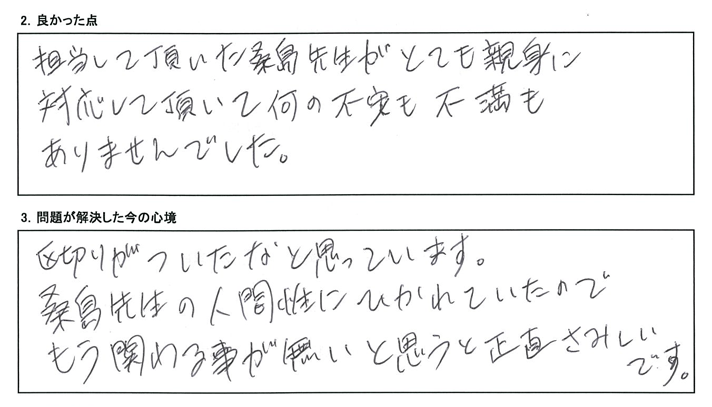 2. 良かった点
担当して頂いた桑島先生がとても親身に
対応して頂いて何の不安も不満も
ありませんでした。
3. 問題が解決した今の心境
区切りがついたなと思っています。
桑島先生の人間性にひかれていたので
もう関わる事が無いと思うと正直さみしい
です。